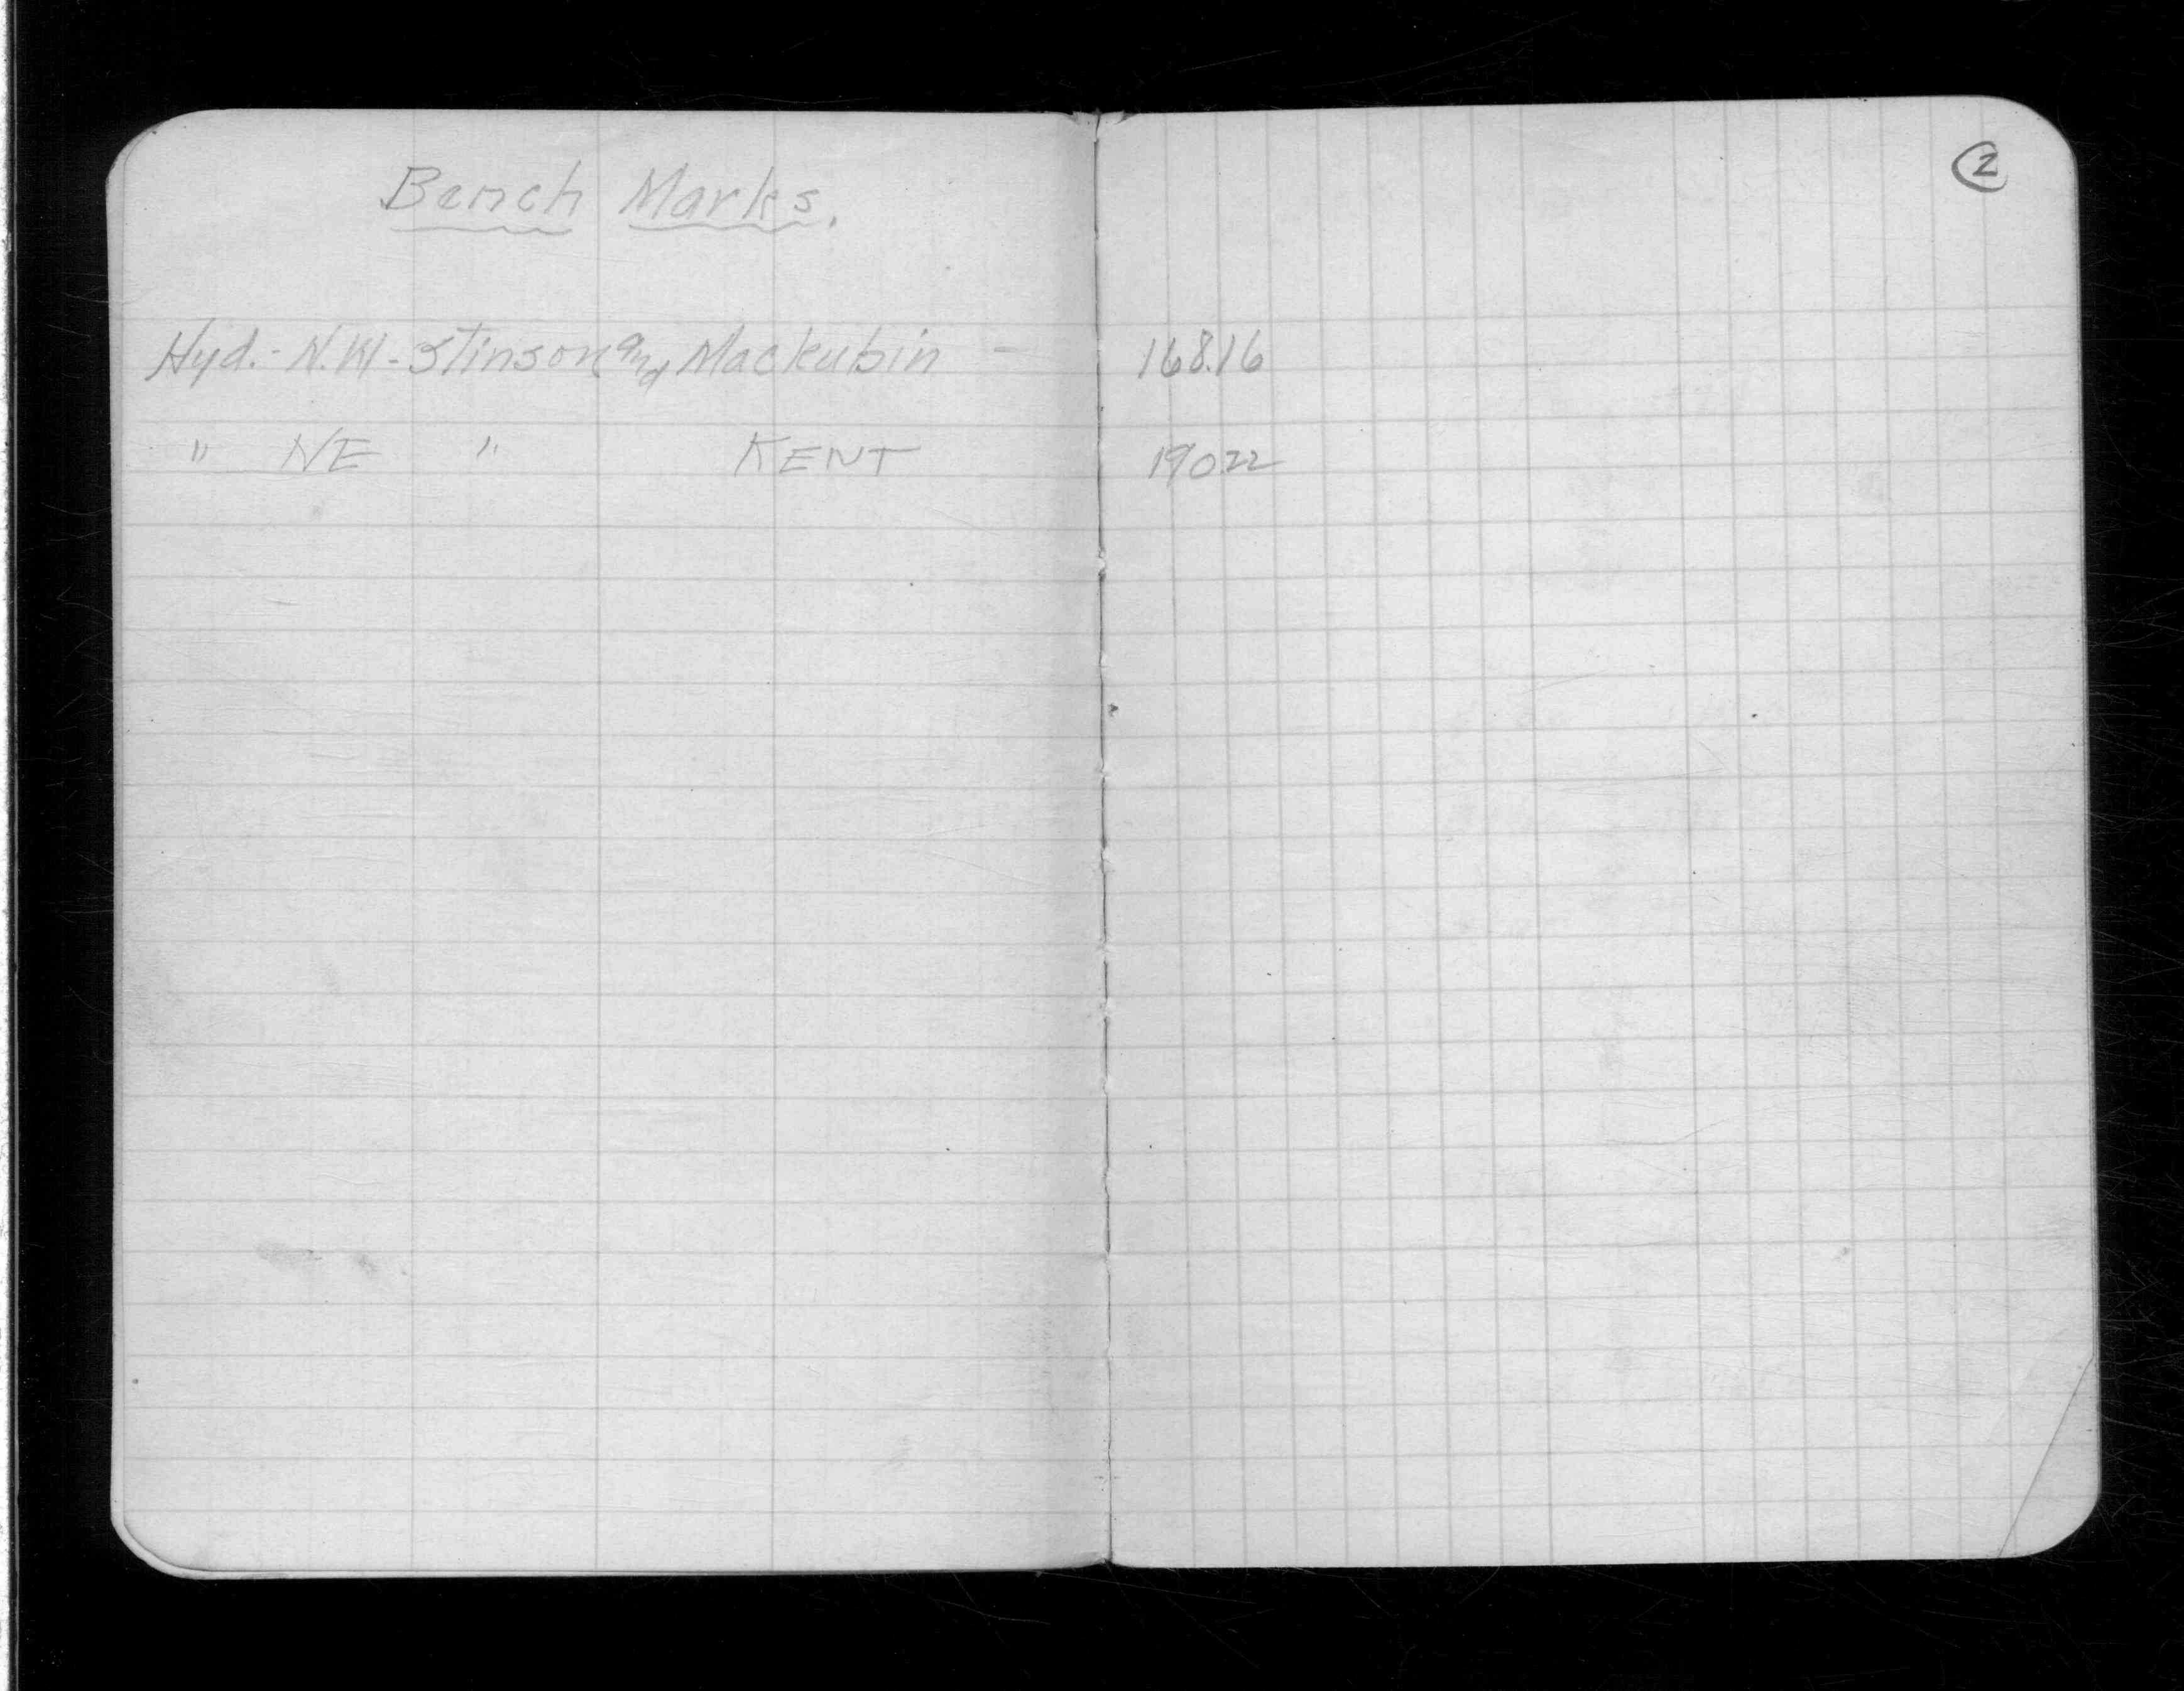 2
Bench Marks.
Hyd. - N.W. - Stinson and Mackubin - 168.16
" NE " KENT 190.22